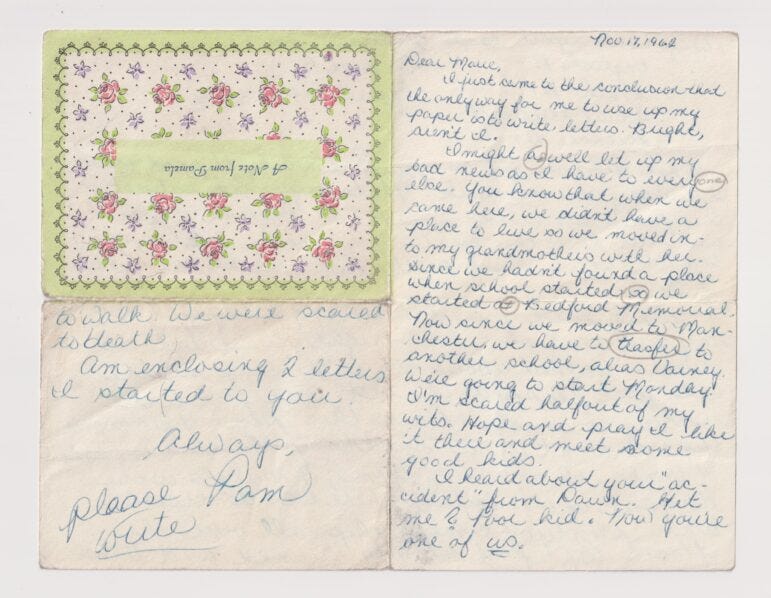 A Note from Pamela
Nov 17, 1962
Dear Marie,
I just came to the conclusion that
the only way for me to use up my
paper is to write letters. Bright,
aren't I.
I might as well let up my
bad news as I have to every one
else. You know that when we
came here, we didn't have a
place to live so we moved in-
to my grandmothers with her.
Since we hadn't found a place
when school started so we
started at Bedford Memorial.
Now since we moved to Man-
chester, we have to trasfer to
another school, alias Varney.
We're going to start Monday.
I'm scared half out of my
wits. Hope and pray I like
it there and meet some
good kids.
I heard about your "ac-
cident" from Dawn. Get
me? Poor kid. Now you're
one of us.
to walk. We were scared
to death.
Am enclosing 2 letters
I started to you.
Always,
Pam
please
write